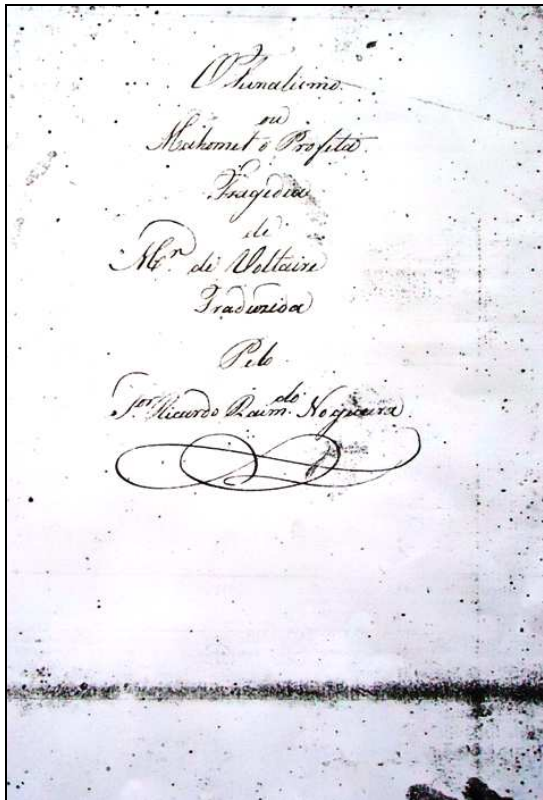 O Fanatismo
ou
Mahomet o Profeta.
Tragedia
de
Mr. de Voltaire
Traduzida
Pelo
Sor. Ricardo Raim.do Nogueira.